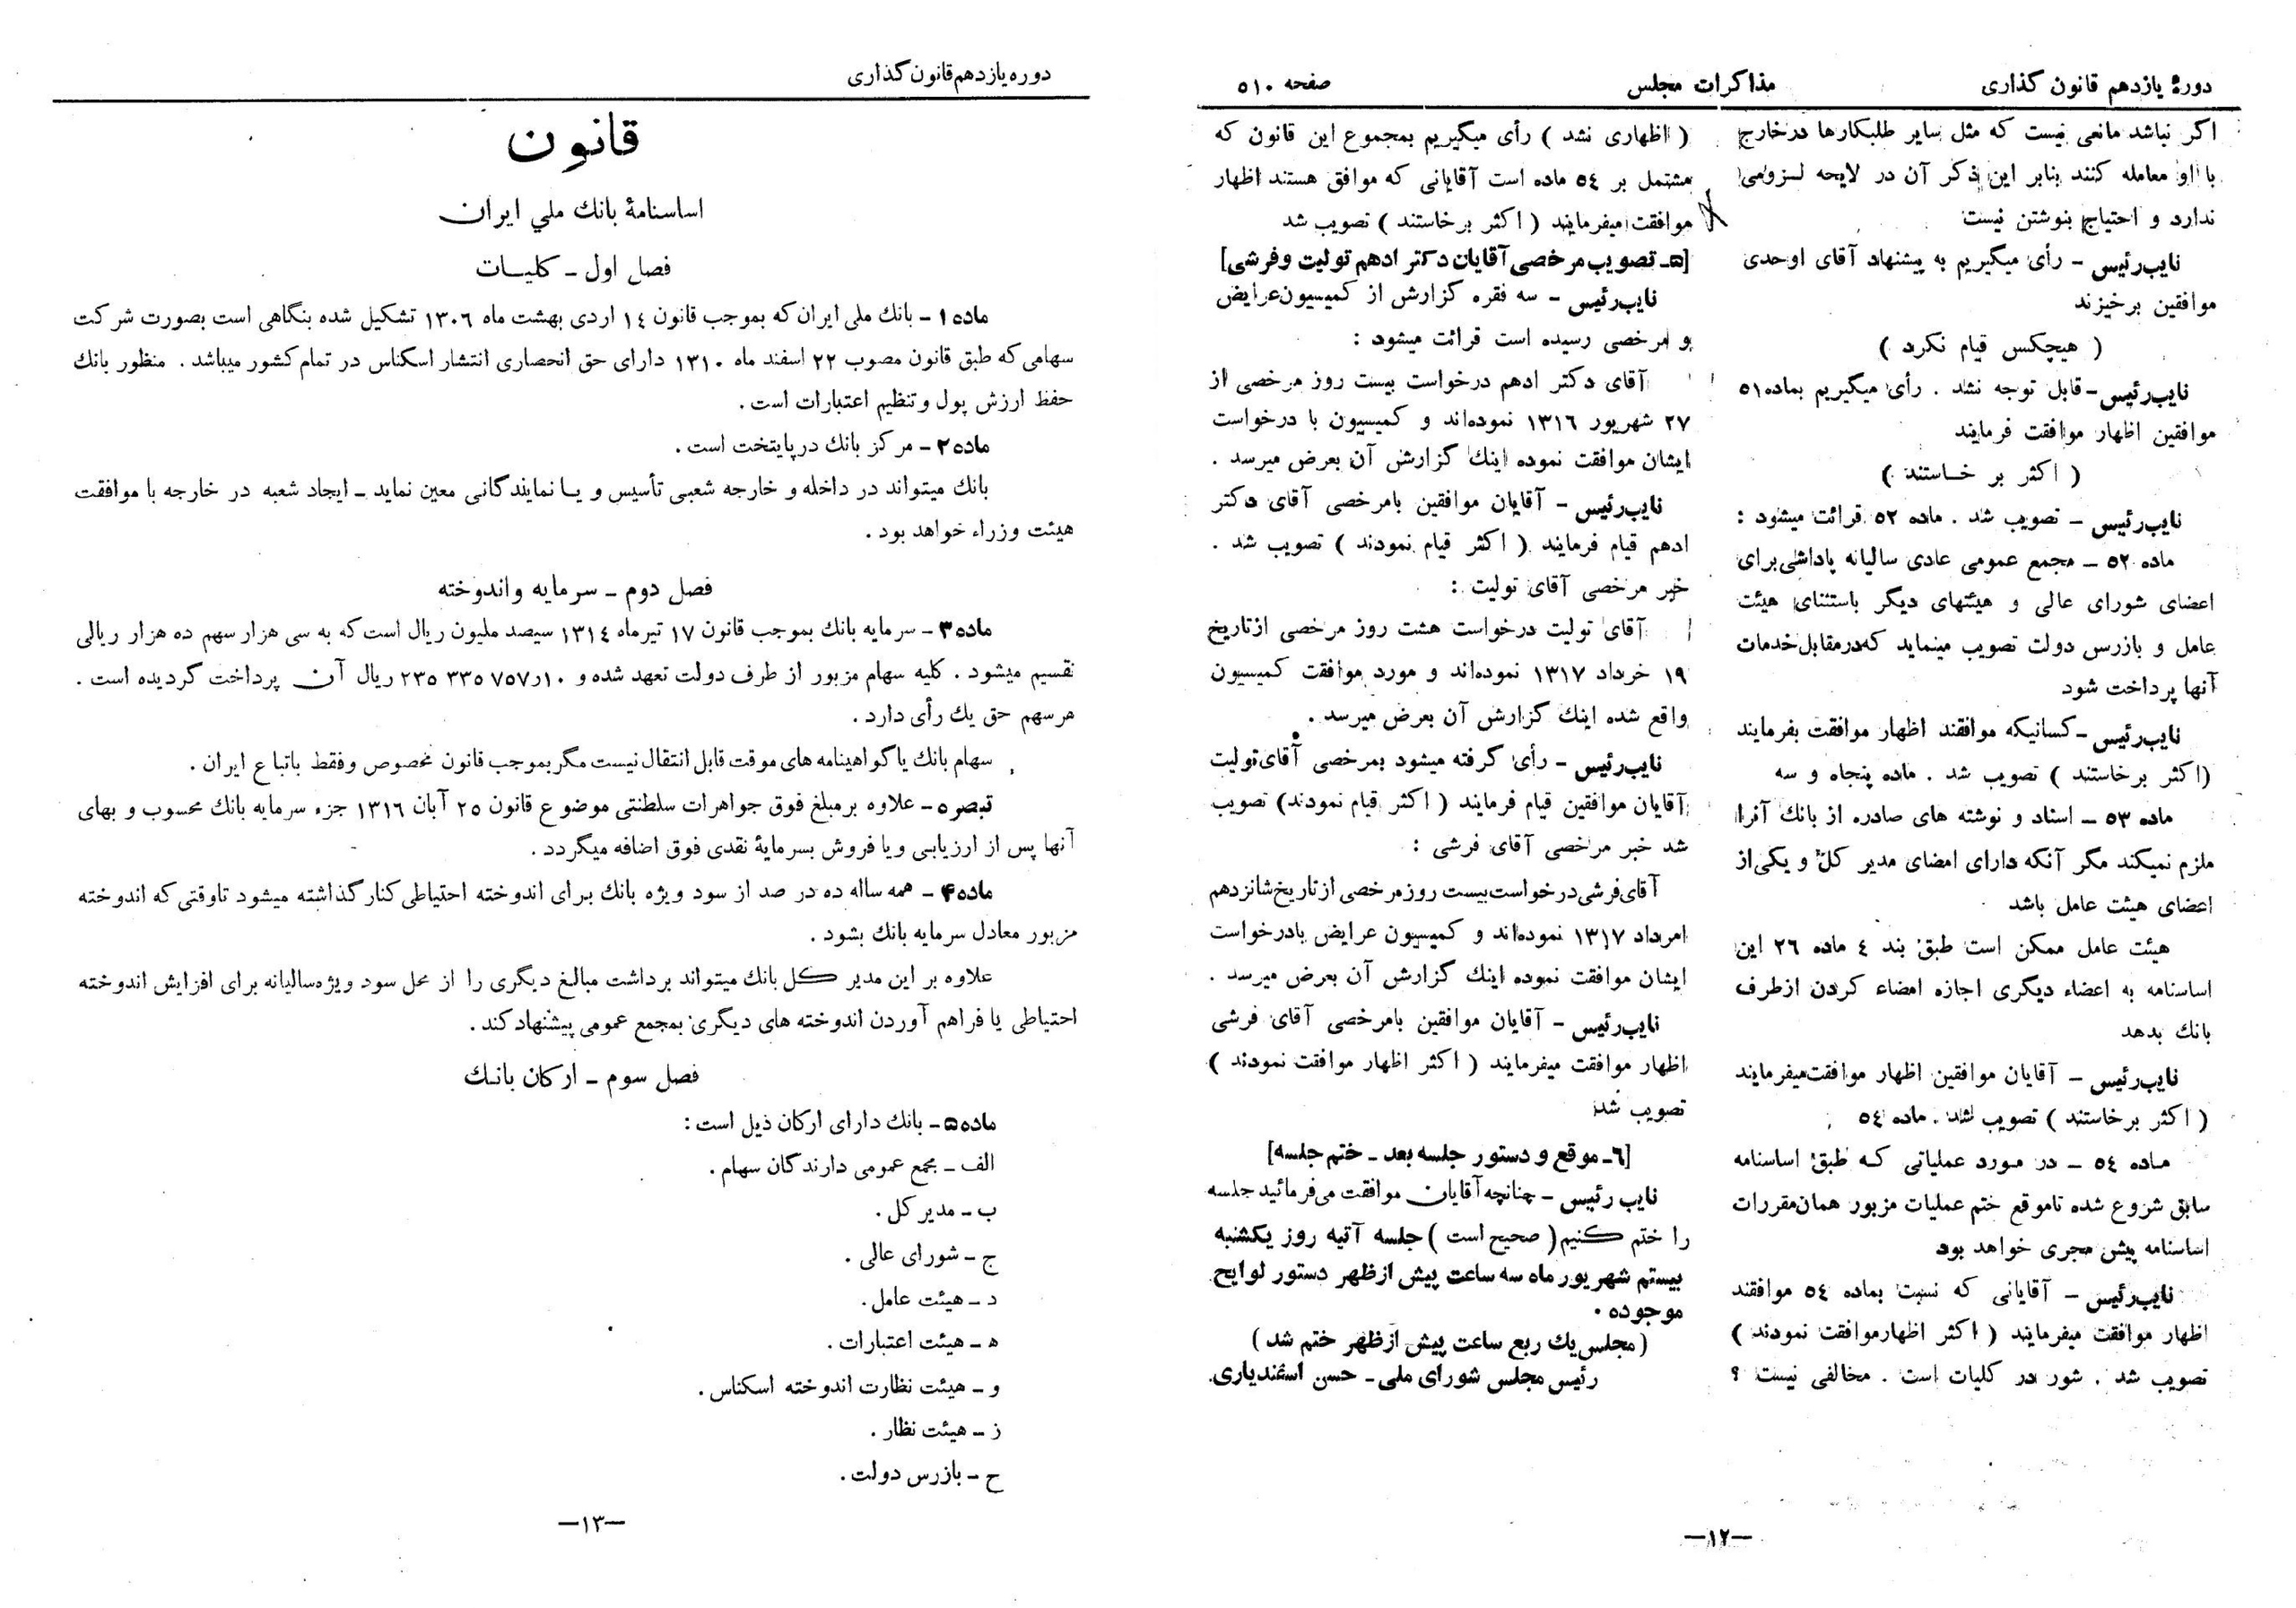 دورهٔ یازدهم قانون گذاری
مذاکرات مجلس
صفحه ۵۱۰
اگر نباشد مانعی نیست که مثل سایر طلبکارها درخارج
با او معامله کنند بنابر این ذکر آن در لایحه لزومی
ندارد و احتیاج بنوشتن نیست
نایب‌رئیس - رأی میگیریم به پیشنهاد آقای اوحدی
موافقین برخیزند
( هیچکس قیام نکرد )
نایب‌رئیس - قابل توجه نشد . رأی میگیریم بماده ۵۱
موافقین اظهار موافقت فرمایند
( اکثر بر خاستند )
نایب‌رئیس - تصویب شد . ماده ۵۲ قرائت میشود :
ماده ۵۲ - مجمع عمومی عادی سالیانه پاداشی برای
اعضای شورای عالی و هیئتهای دیگر باستثنای هیئت
عامل و بازرس دولت تصویب مینماید که درمقابل خدمات
آنها پرداخت شود
نایب‌رئیس - کسانیکه موافقند اظهار موافقت بفرمایند
(اکثر برخاستند ) تصویب شد . ماده پنجاه و سه
ماده ۵۳ - اسناد و نوشته های صادره از بانك آنرا
ملزم نمیکند مگر آنکه دارای امضای مدیر کل و یکی از
اعضای هیئت عامل باشد
هیئت عامل ممکن است طبق بند ٤ ماده ۲٦ این
اساسنامه به اعضاء دیگری اجازه امضاء کردن ازطرف
بانك بدهد
نایب‌رئیس - آقایان موافقین اظهار موافقت میفرمایند
( اکثر برخاستند ) تصویب شد . ماده ٥٤
ماده ٥٤ - در مورد عملیاتی که طبق اساسنامه
سابق شروع شده تاموقع ختم عملیات مزبور همان مقررات
اساسنامه پیش مجری خواهد بود
نایب‌رئیس - آقایانی که نسبت بماده ٥٤ موافقند
اظهار موافقت میفرمایند ( اکثر اظهارموافقت نمودند )
تصویب شد . شور در کلیات است . مخالفی نیست ؟
( اظهاری نشد ) رأی میگیریم بمجموع این قانون که
مشتمل بر ٥٤ ماده است آقایانی که موافق هستند اظهار
موافقت میفرمایند ( اکثر برخاستند ) تصویب شد
[۵- تصویب مرخصی آقایان دکتر ادهم تولیت و فرشی]
نایب‌رئیس - سه فقره گزارش از کمیسیون عرایض
و مرخصی رسیده است قرائت میشود :
آقای دکتر ادهم درخواست بیست روز مرخصی از
۲۷ شهریور ۱۳۱٦ نموده‌اند و کمیسیون با درخواست
ایشان موافقت نموده اینك گزارش آن بعرض میرسد .
نایب‌رئیس - آقایان موافقین بامرخصی آقای دکتر
ادهم قیام فرمایند ( اکثر قیام نمودند ) تصویب شد .
خبر مرخصی آقای تولیت :
آقای تولیت درخواست هشت روز مرخصی ازتاریخ
۱۹ خرداد ۱۳۱۷ نموده‌اند و مورد موافقت کمیسیون
واقع شده اینك گزارش آن بعرض میرسد .
نایب‌رئیس - رأی گرفته میشود بمرخصی آقای تولیت
آقایان موافقین قیام فرمایند ( اکثر قیام نمودند) تصویب
شد خبر مرخصی آقای فرشی :
آقای فرشی درخواست بیست روز مرخصی از تاریخ شانزدهم
امرداد ۱۳۱۷ نموده‌اند و کمیسیون عرایض بادرخواست
ایشان موافقت نموده اینك گزارش آن بعرض میرسد .
نایب‌رئیس - آقایان موافقین بامرخصی آقای فرشی
اظهار موافقت میفرمایند ( اکثر اظهار موافقت نمودند )
تصویب شد
[٦- موقع و دستور جلسه بعد - ختم جلسه]
نایب رئیس - چنانچه آقایان موافقت می‌فرمائید جلسه
را ختم کنیم( صحیح است ) جلسه آتیه روز یکشنبه
بیستم شهریور ماه سه ساعت پیش ازظهر دستور لوایح
موجوده .
( مجلس یك ربع ساعت پیش ازظهر ختم شد )
رئیس مجلس شورای ملی - حسن اسفندیاری
—۱۲—
دوره یازدهم قانون گذاری
قانون
اساسنامهٔ بانك ملی ایران
فصل اول - کلیات
ماده ۱ - بانك ملی ایران که بموجب قانون ۱٤ اردی بهشت ماه ۱۳۰٦ تشکیل شده بنگاهی است بصورت شرکت
سهامی که طبق قانون مصوب ۲۲ اسفند ماه ۱۳۱۰ دارای حق انحصاری انتشار اسکناس در تمام کشور میباشد . منظور بانك
حفظ ارزش پول و تنظیم اعتبارات است .
ماده ۲ - مرکز بانك در پایتخت است .
بانك میتواند در داخله و خارجه شعبی تأسیس و یا نمایندگانی معین نماید - ایجاد شعبه در خارجه با موافقت
هیئت وزراء خواهد بود .
فصل دوم - سرمایه و اندوخته
ماده ۳ - سرمایه بانك بموجب قانون ۱۷ تیرماه ۱۳۱٤ سیصد ملیون ریال است که به سی هزار سهم ده هزار ریالی
تقسیم میشود . کلیه سهام مزبور از طرف دولت تعهد شده و ۲۳۵ ۳۳۵ ۷۵۷ر۱۰ ریال آن پرداخت گردیده است .
هر سهم حق یك رأی دارد .
سهام بانك یا گواهینامه های موقت قابل انتقال نیست مگر بموجب قانون مخصوص و فقط باتباع ایران .
تبصره - علاوه بر مبلغ فوق جواهرات سلطنتی موضوع قانون ۲۵ آبان ۱۳۱٦ جزء سرمایه بانك محسوب و بهای
آنها پس از ارزیابی و یا فروش بسرمایهٔ نقدی فوق اضافه میگردد .
ماده ۴ - همه ساله ده در صد از سود ویژه بانك برای اندوخته احتیاطی کنار گذاشته میشود تاوقتی که اندوخته
مزبور معادل سرمایه بانك بشود .
علاوه بر این مدیر کل بانك میتواند برداشت مبالغ دیگری را از محل سود ویژه سالیانه برای افزایش اندوخته
احتیاطی یا فراهم آوردن اندوخته های دیگری بمجمع عمومی پیشنهاد کند .
فصل سوم - ارکان بانك
ماده ۵ - بانك دارای ارکان ذیل است :
الف - مجمع عمومی دارندگان سهام .
ب - مدیر کل .
ج - شورای عالی .
د - هیئت عامل .
ه - هیئت اعتبارات .
و - هیئت نظارت اندوخته اسکناس .
ز - هیئت نظار .
ح - بازرس دولت .
—۱۳—